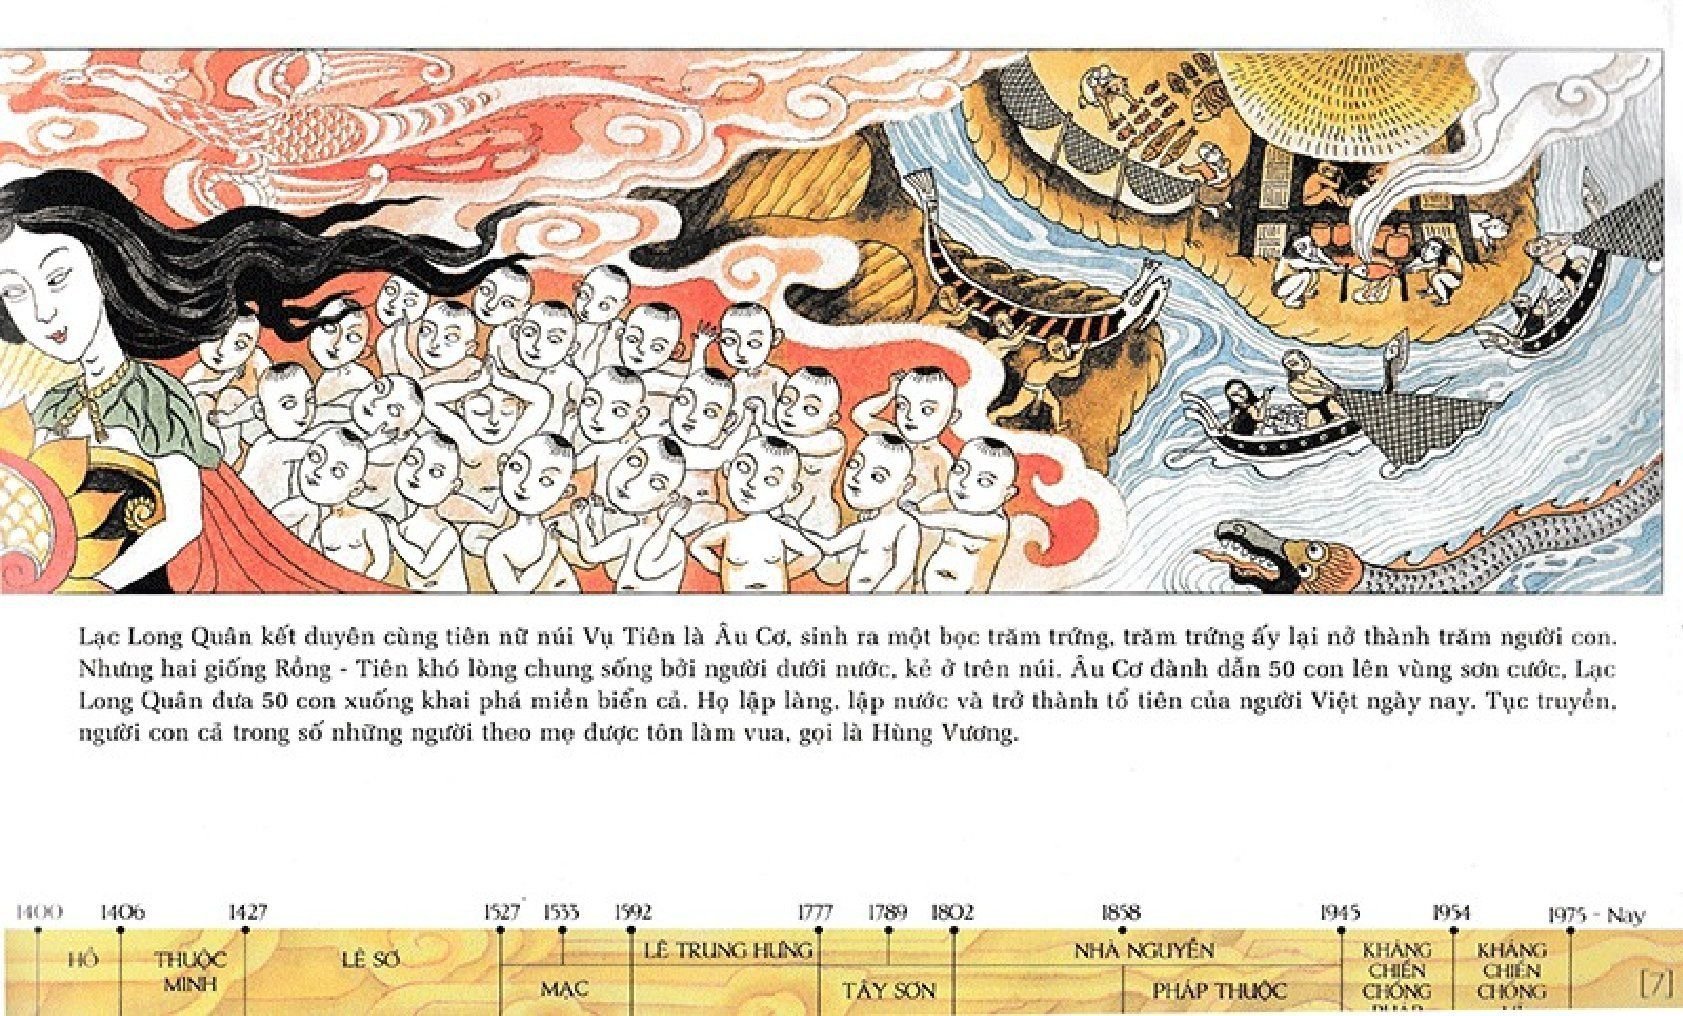 Lạc Long Quân kết duyên cùng tiên nữ núi Vụ Tiên là Âu Cơ, sinh ra một bọc trăm trứng, trăm trứng ấy lại nở thành trăm người con.
Nhưng hai giống Rồng - Tiên khó lòng chung sống bởi người dưới nước, kẻ ở trên núi. Âu Cơ đành dẫn 50 con lên vùng sơn cước, Lạc
Long Quân đưa 50 con xuống khai phá miền biển cả. Họ lập làng, lập nước và trở thành tổ tiên của người Việt ngày nay. Tục truyền,
người con cả trong số những người theo mẹ được tôn làm vua, gọi là Hùng Vương.
1400 1406 1427 1527 1533 1592 1777 1789 1802 1858 1945 1954 1975 - Nay
HỒ THUỘC LÊ SƠ LÊ TRUNG HƯNG NHÀ NGUYỄN KHÁNG KHÁNG
MINH MẠC TÂY SƠN PHÁP THUỘC CHIẾN CHIẾN
CHỐNG CHỐNG [7]